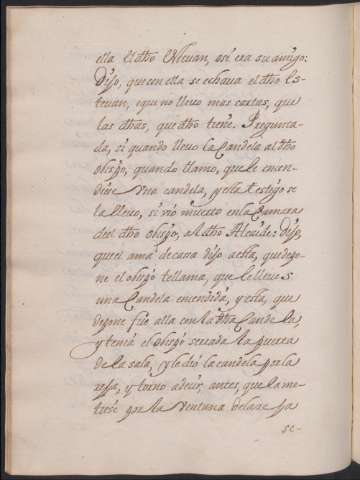 ella el dho Estevan, asi era su amigo:
Dijo, que en ella se echava el dho Es-
tevan, i que no llevo mas cartas, que
las dhas, que dho tiene. Pregunta-
da, si quando llevo la Candela al dho
obispo, quando llamo, que le encen-
diese una candela, y ella testigo se
la llevo, si vió muerto en la Camara
del dho obispo, al dho Alcaide: Dijo,
que el ama de casa dijo a esta, que depo-
ne el obispo te llama, que le lleves
una Candela encendida, y esta, que
depone fue alla con la dha Candela,
y tenia el obispo serrada la puerta
de la sala, y le dió la candela por la
rega, y torno a decir, antes, que la me-
tiese por la ventana
se-